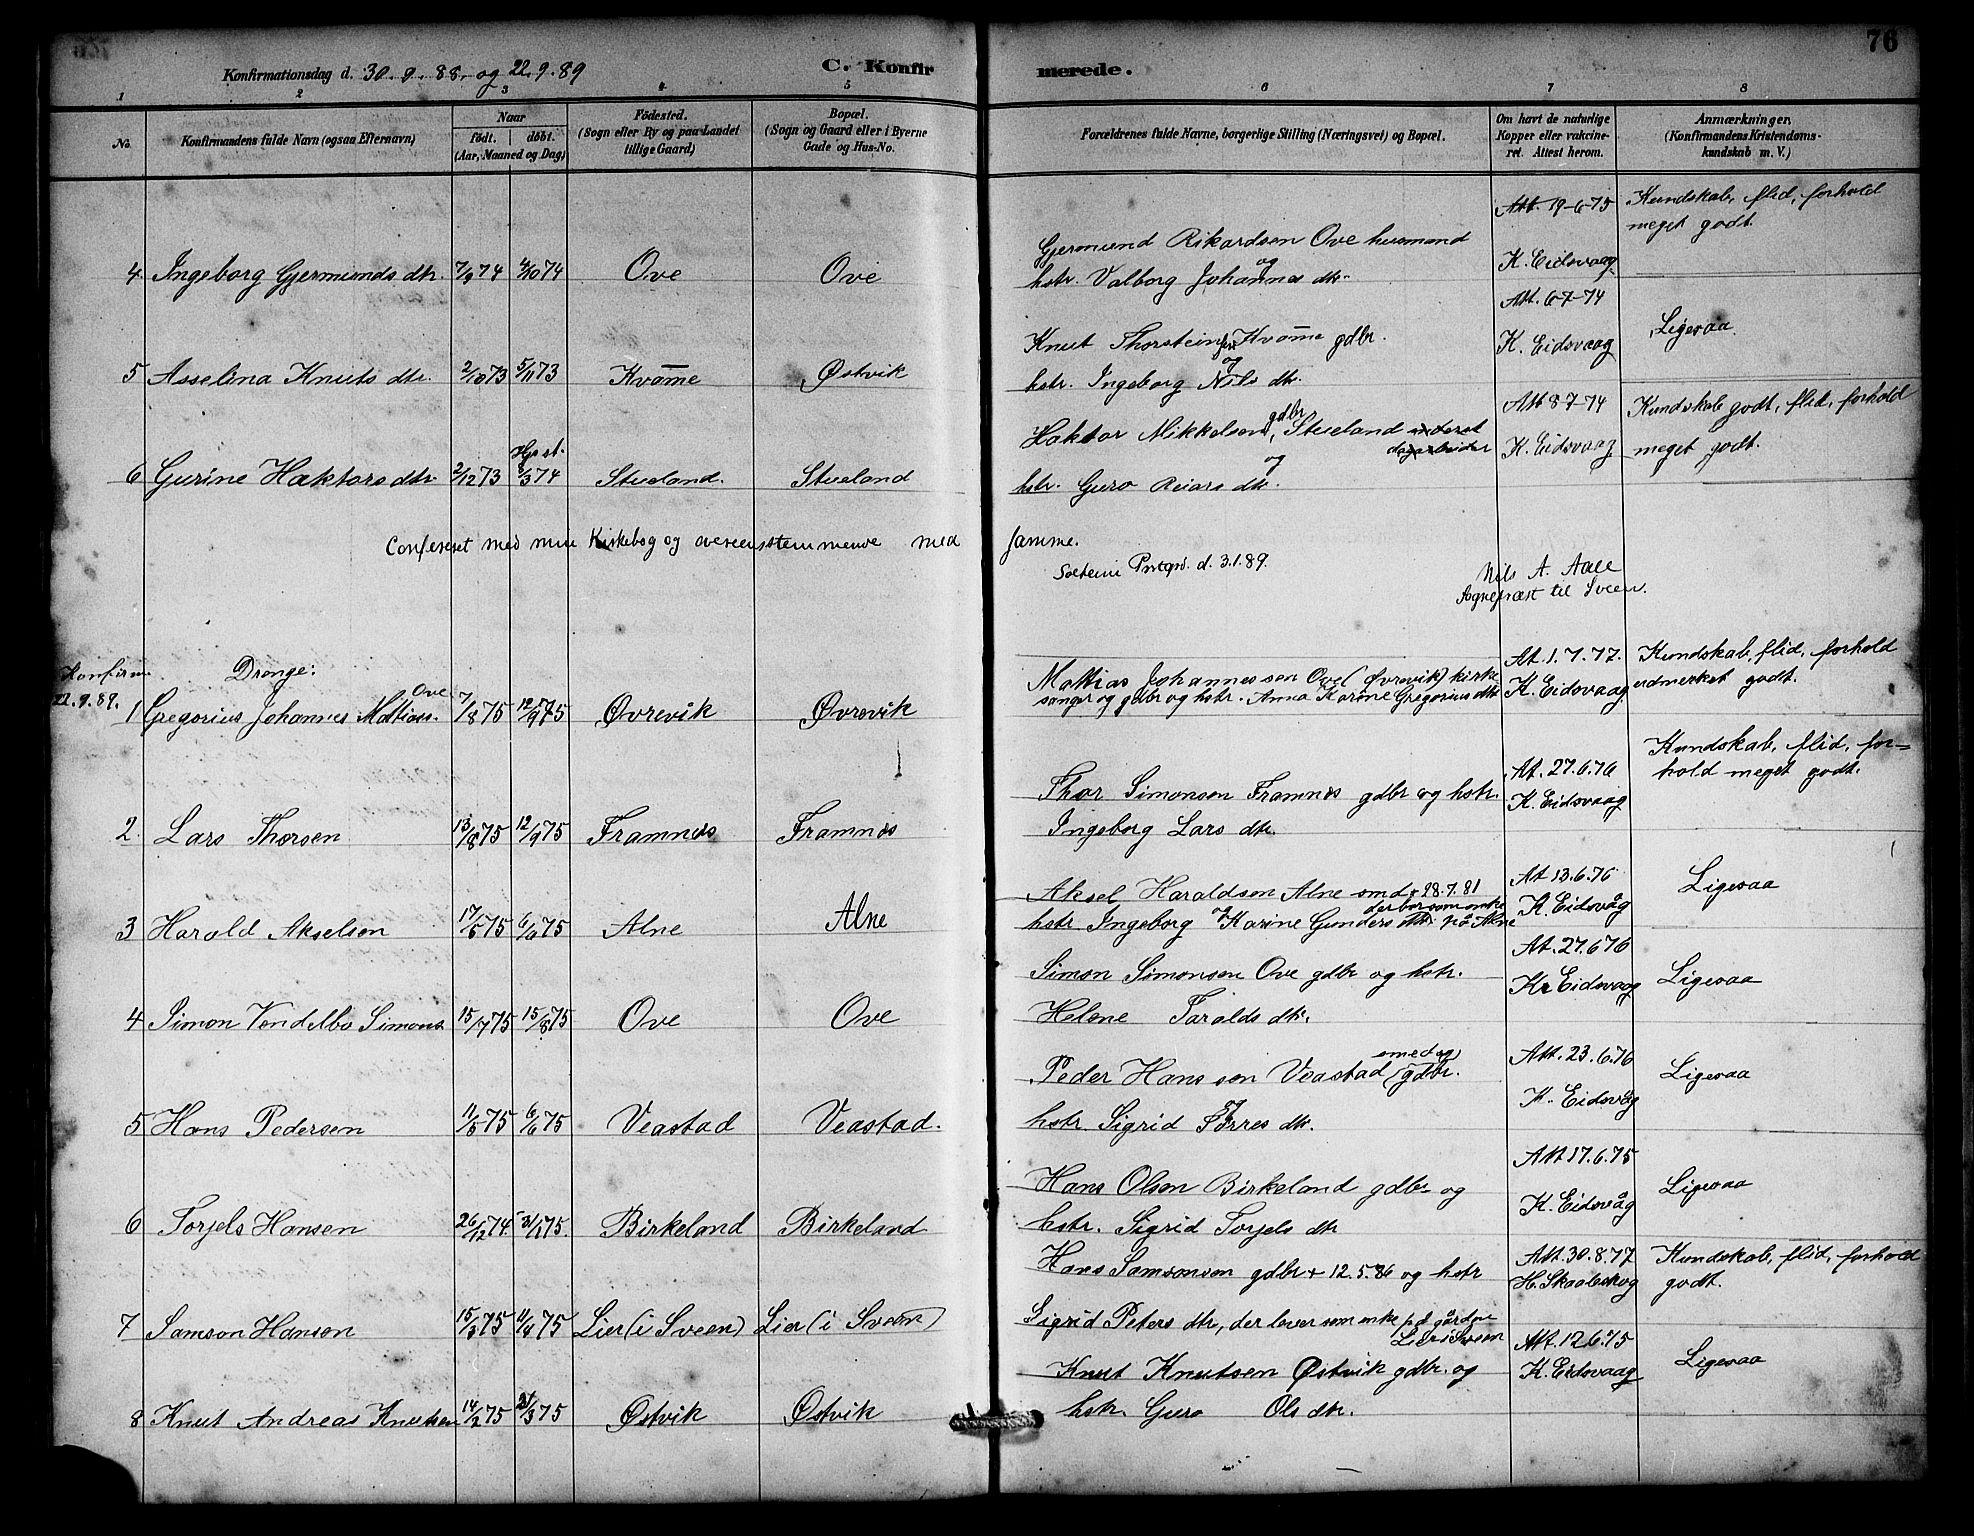 76
Konfirmationsdag d. 30.9.88. og 22.9.89
C. Konfirmerede.
1 2 3 4 5 6 7 8
No.
Konfirmandens fulde Navn (ogsaa Efternavn)
Naar
födt. döbt.
(Aar, Maaned og Dag)
Födested.
(Sogn eller By og paa Landet
tillige Gaard)
Bopæl.
(Sogn og Gaard eller i Byerne
Gade og Hus-No.
Forældrenes fulde Navne, borgerlige Stilling (Næringsvei) og Bopæl.
Om havt de naturlige
Kopper eller vakcine-
ret. Attest herom.
Anmærkninger,
(Konfirmandens Kristendoms-
kundskab m. V.)
4. Ingeborg Gjermunds dtr. 7/9 74 4/10 74 Ove Ove
Gjermund Rikardsen Ove husmand
og
hstr. Valborg Johannes dtr.
Att. 19-6-75
K. Eidsvaag
Kundskab, flid, forhold
meget godt.
5 Asselina Knuts dtr. 2/10 73 5/11 73 Kvame Østvik
Knut Thorsteinsen Kvame gdbr.
og
hstr. Ingeborg Nils dtr.
Att. 6-7-74
K. Eidsvaag
Ligesaa
6 Gurine Haktors dtr. 2/12 73 Hjst. 8/3 74 Stueland. Stueland
Haktor Mikkelsen, gdbr Stueland
dagarbeider
og
hstr. Guro Reiars dtr.
Att 8-7-74
K. Eidsvaag
Kundskab godt, flid, forhold
meget godt.
Confereret med min Kirkebog og overensstemmende med samme.
Prstgrd. d. 3.1.89.
Nils A. Aale
Sognepræst til Sveen.
Konfirm.
22.9.89.
Drenge:
1 Gregorius Johannes Mattiass. Ove 7/8 75 12/9 75 Øvrevik Øvrevik
Mattias Johannessen Ove (Øvrevik) kirke
sanger og gdbr og hstr. Anna Karine Gregorius dtr
At. 1.7.77.
K. Eidsvaag
Kundskab, flid, forhold
udmerket godt.
2. Lars Thorsen 13/8 75 12/9 75 Framnes Framnes
Thor Simonsen Framnes gdbr og hstr.
Ingeborg Lars dtr.
At. 27.6.76
K. Eidsvaag
Kundskab, flid, for=
hold meget godt.
3 Harald Akselsen 17/5 75 6/6 75 Alne Alne
Aksel Haraldsen Alne smed + 28.7.81
der bor som enke
hstr Ingeborg og Karine Gunders dtr. på Alne
At 13.6.76
K. Eidsvåg
Ligesaa
4 Simon Vendelbo Simons. 15/7 75 15/8 75 Ove Ove
Simon Simonsen Ove gdbr og hstr.
Helene Taralds dtr.
At. 27.6 76
Kr Eidsvaag
Ligesaa
5 Hans Pedersen 11/5 75 6/6 75 Veastad Veastad.
smed og
Peder Hanssen Veastad gdbr.
og
hstr Sigrid Tørres dtr.
Att. 23.6.76
K. Eidsvåg
Ligesaa
6 Torjels Hansen 26/12 74. 31/1 75. Birkeland Birkeland
Hans Olsen Birkeland gdbr og
hstr. Sigrid Torjels dtr
Att 17.6.75
K. Eidsvåg
Ligesaa
7 Samson Hanson 15/3 75 11/4 75 Lier (i Sveen) Lier (i Sveen)
Hans Samsonsen gdbr + 12.5.86 og hstr
Sigrid Peters dtr, der lever som enke på gården
Lier i Sveen
Att. 30.8.77
H. Skaaleskog
Kundskab, flid, forhold
godt.
8 Knut Andreas Knutsen 14/2 75 21/3 75 Østvik Østvik
Knut Knutsen Østvik gdbr. og
hstr. Guro Ols dtr.
Att. 12.6.75
K. Eidsvaag
Ligesaa